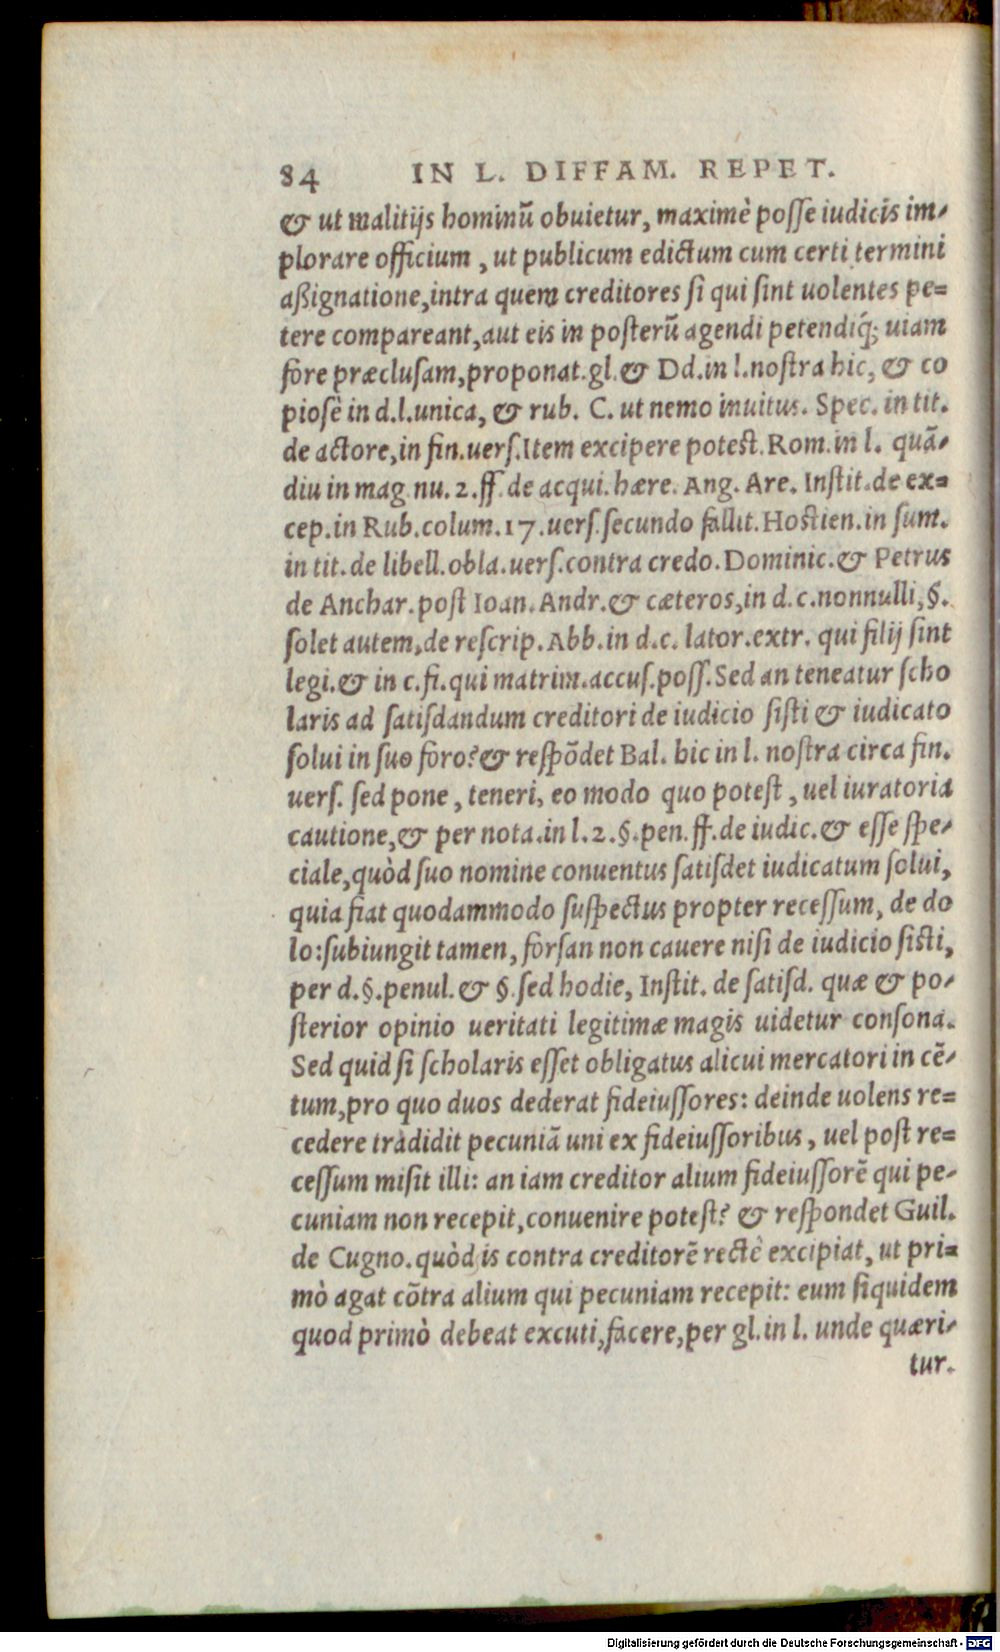 84 IN L. DIFFAM. REPET.
& ut malitijs hominū obuietur, maximè posse iudicis im-
plorare officium, ut publicum edictum cum certi termini
aßignatione, intra quem creditores si qui sint uolentes pe=
tere compareant, aut eis in posterū agendi petendiq́; uiam
fore præclusam, proponat. gl. & Dd. in l. nostra hic, & co
piosè in d. l. unica, & rub. C. ut nemo inuitus. Spec. in tit.
de actore, in fin. uers. Item excipere potest. Rom. in l. quā-
diu in mag. nu. 2. ff. de acqui. hære. Ang. Are. Instit. de ex=
cep. in Rub. colum. 17. uers. secundo fallit. Hostien. in sum.
in tit. de libell. obla. uers. contra credo. Dominic. & Petrus
de Anchar. post Ioan. Andr. & cæteros, in d. c. nonnulli, §.
solet autem, de rescrip. Abb. in d. c. lator. extr. qui filij sint
legi. & in c. fi. qui matrim. accus. poss. Sed an teneatur scho
laris ad satisdandum creditori de iudicio sisti & iudicato
solui in suo foro? & respōdet Bal. hic in l. nostra circa fin.
uers. sed pone, teneri, eo modo quo potest, uel iuratoria
cautione, & per nota. in l. 2. §. pen. ff. de iudic. & esse spe-
ciale, quòd suo nomine conuentus satisdet iudicatum solui,
quia fiat quodammodo suspectus propter recessum, de do
lo: subiungit tamen, forsan non cauere nisi de iudicio sisti,
per d. §. penul. & §. sed hodie, Instit. de satisd. quæ & po-
sterior opinio ueritati legitimæ magis uidetur consona.
Sed quid si scholaris esset obligatus alicui mercatori in cē-
tum, pro quo duos dederat fideiussores: deinde uolens re=
cedere tradidit pecuniā uni ex fideiussoribus, uel post re=
cessum misit illi: an iam creditor alium fideiussorē qui pe-
cuniam non recepit, conuenire potest? & respondet Guil.
de Cugno. quòd is contra creditorē rectè excipiat, ut pri=
mò agat cōtra alium qui pecuniam recepit: eum siquidem
quod primò debeat excuti, facere, per gl. in l. unde quæri-
tur.
Digitalisierung gefördert durch die Deutsche Forschungsgemeinschaft - DFG